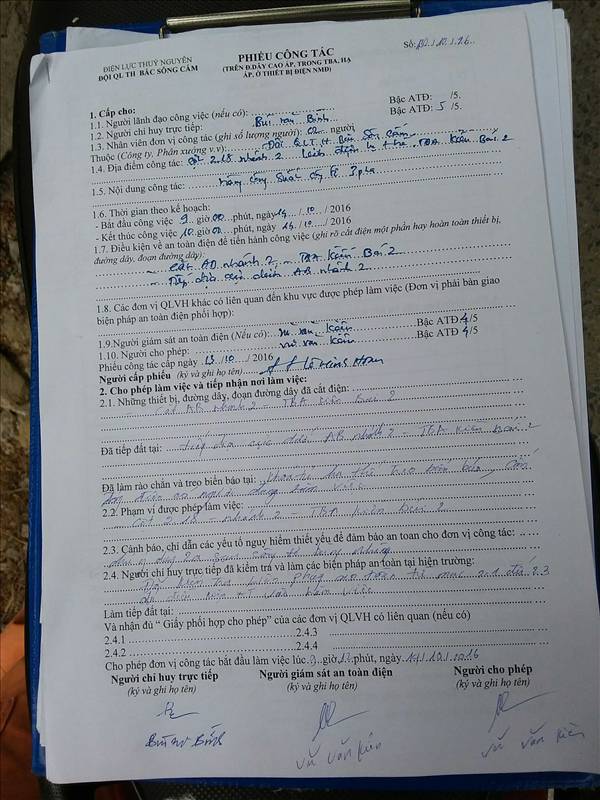 ĐIỆN LỰC THUỶ NGUYÊN
ĐỘI QL TH BẮC SÔNG CẤM
PHIẾU CÔNG TÁC
(TRÊN Đ.DÂY CAO ÁP, TRONG TBA, HẠ
ÁP, Ở THIẾT BỊ ĐIỆN NMĐ)
Số:
1. Cấp cho:
1.1. Người lãnh đạo công việc (nếu có): Bậc ATĐ: /5.
1.2. Người chỉ huy trực tiếp: Bùi văn Bính Bậc ATĐ: 5 /5.
1.3. Nhân viên đơn vị công tác (ghi số lượng người): 02 người
Thuộc (Công ty, Phân xưởng v.v): Đội QLTH Bắc Sông Cấm
1.4. Địa điểm công tác: Cột 2.18 nhánh 2 TBA Kiền Bái 2
1.5. Nội dung công tác: 3 pha
1.6. Thời gian theo kế hoạch:
- Bắt đầu công việc 9 giờ 00 phút, ngày 14 / 10 / 2016
- Kết thúc công việc 10 giờ 00 phút, ngày 14 / 10 / 2016
1.7. Điều kiện về an toàn điện để tiến hành công việc (ghi rõ cắt điện một phần hay hoàn toàn thiết bị,
đường dây, đoạn đường dây):
- Cắt AB nhánh 2 - TBA Kiền Bái 2
- Tiếp địa cực dưới AB nhánh 2
1.8. Các đơn vị QLVH khác có liên quan đến khu vực được phép làm việc (Đơn vị phải bàn giao
biện pháp an toàn điện phối hợp):
1.9.Người giám sát an toàn điện (Nếu có): vũ văn Kiên Bậc ATĐ 4/5
1.10. Người cho phép: vũ văn Kiên Bậc ATĐ 4/5
Phiếu công tác cấp ngày 13 / 10 / 2016
Người cấp phiếu (ký và ghi họ tên)
2. Cho phép làm việc và tiếp nhận nơi làm việc:
2.1. Những thiết bị, đường dây, đoạn đường dây đã cắt điện:
Cắt AB nhánh 2 - TBA Kiền Bái 2
Đã tiếp đất tại: Tiếp địa cực dưới AB nhánh 2 - TBA Kiền Bái 2
Đã làm rào chắn và treo biển báo tại: treo biển báo, Cấm
đóng điện có người đang làm việc
2.2. Phạm vi được phép làm việc:
Cột 2.18 - nhánh 2 - TBA Kiền Bái 2
2.3. Cảnh báo, chỉ dẫn các yếu tố nguy hiểm thiết yếu để đảm bảo an toàn cho đơn vị công tác:
2.4. Người chỉ huy trực tiếp đã kiểm tra và làm các biện pháp an toàn tại hiện trường:
Đã kiểm tra biện pháp an toàn từ mục 2.1 đến 2.3
Làm tiếp đất tại:
Và nhận đủ “ Giấy phối hợp cho phép” của các đơn vị QLVH có liên quan (nếu có)
2.4.1 2.4.3
2.4.2 2.4.4
Cho phép đơn vị công tác bắt đầu làm việc lúc giờ phút, ngày 14 / 10 / 2016
Người chỉ huy trực tiếp Người giám sát an toàn điện Người cho phép
(ký và ghi họ tên) (ký và ghi họ tên) (ký và ghi họ tên)
Bùi văn Bính Vũ Văn Kiên Vũ Văn Kiên